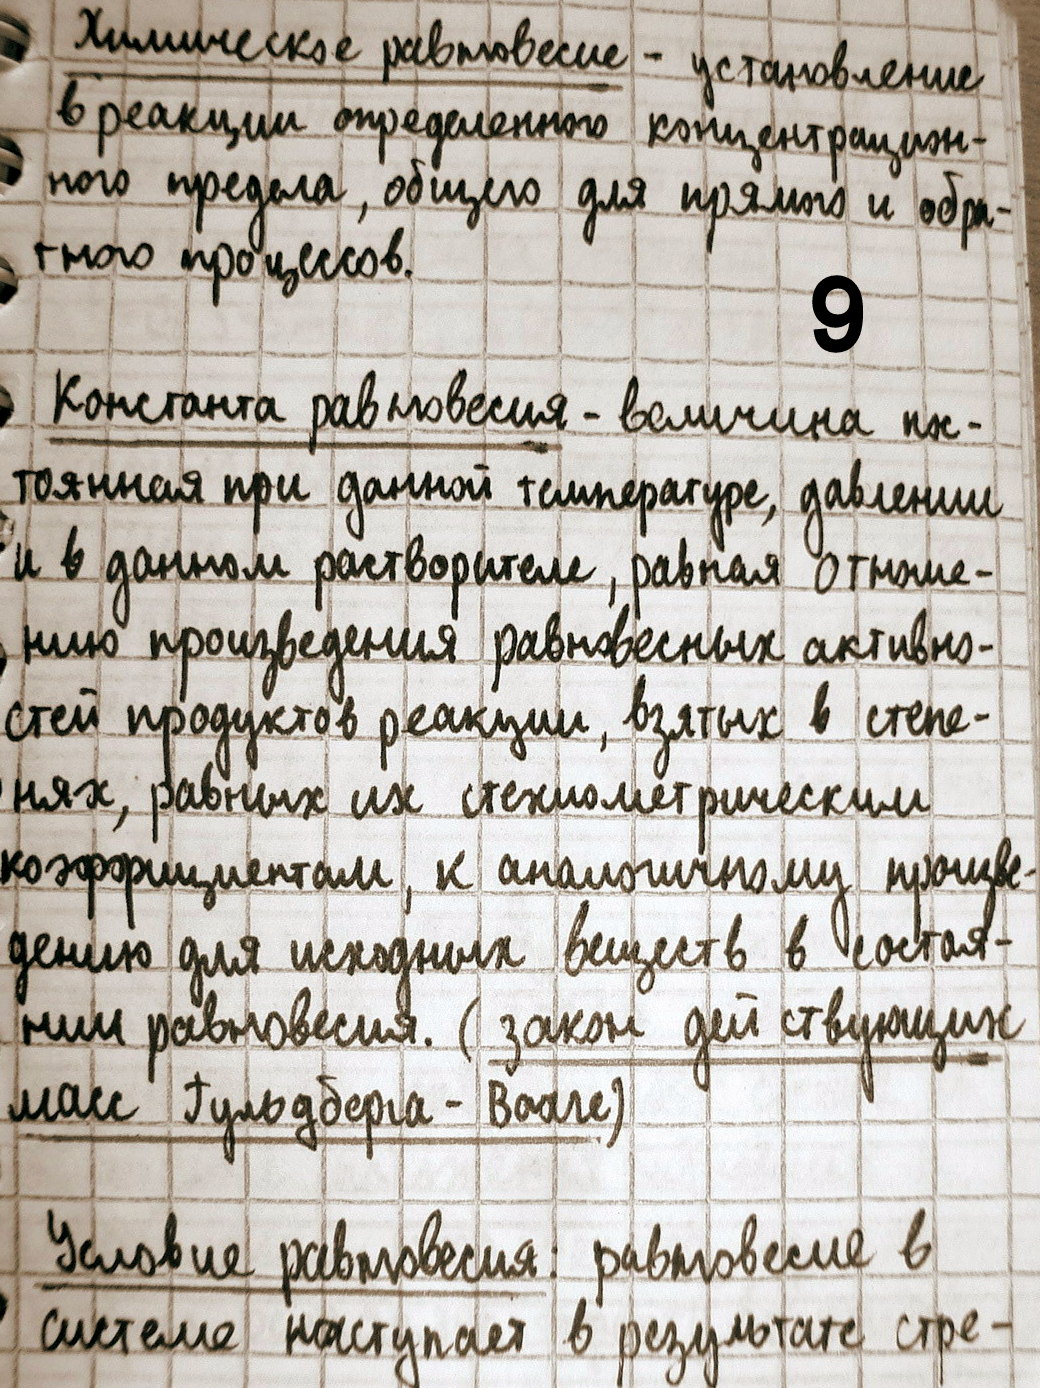 Химическое равновесие - установление
в реакции определенного концентрацион-
ного предела, общего для прямого и обра-
тного процессов.
9
Константа равновесия - величина пос-
тоянная при данной температуре, давлении
и в данном растворителе, равная отноше-
нию произведения равновесных активно-
стей продуктов реакции, взятых в степе-
нях, равных их стехиометрическим
коэффициентам, к аналогичному произве-
дению для исходных веществ в состоя-
нии равновесия. (закон действующих
масс Гульдберга - Вааге)
Условие равновесия: равновесие в
системе наступает в результате стре-